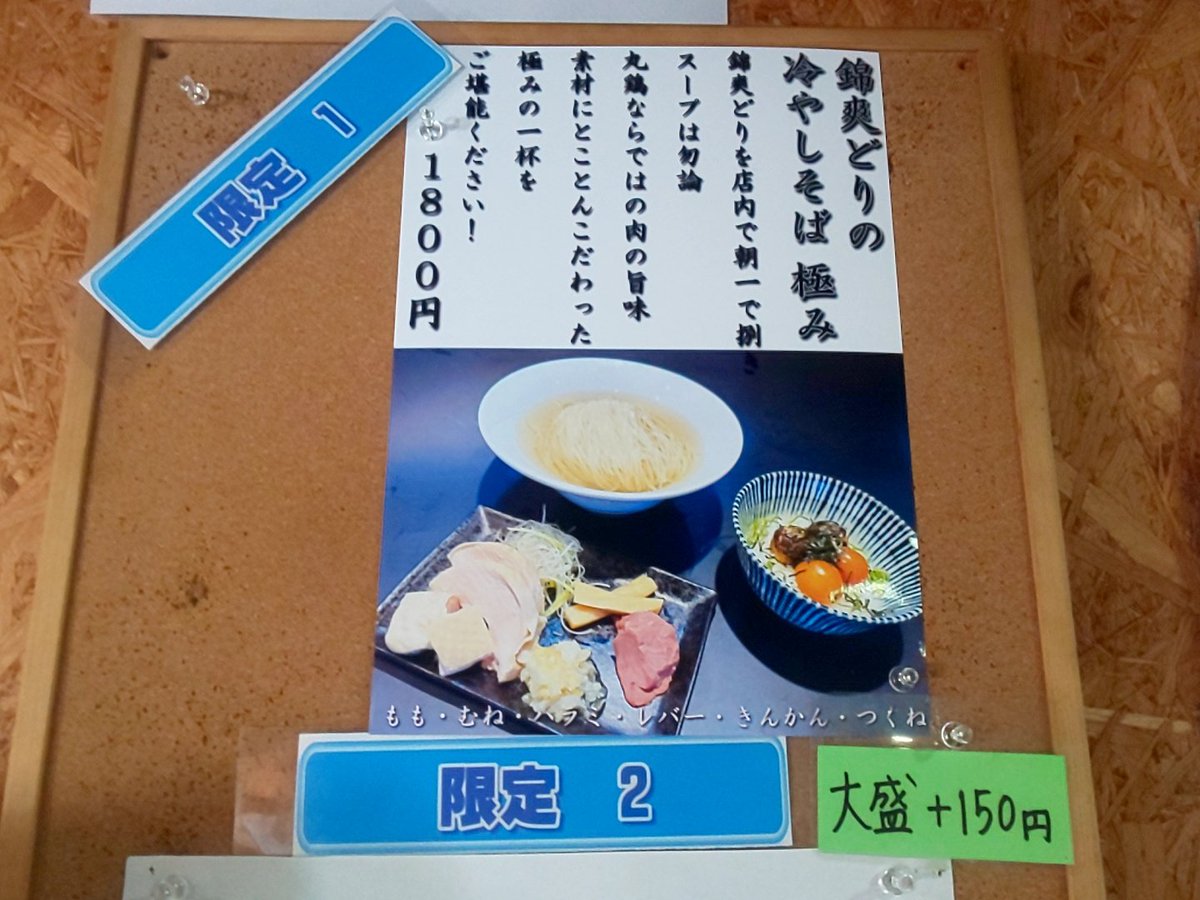 限定 1
錦爽どりの
冷やしそば 極み
錦爽どりを店内で朝一で捌き
スープは勿論
丸鶏ならではの肉の旨味
素材にとことんこだわった
極みの一杯を
ご堪能ください！
1800円
もも・むね・ハラミ・レバー・きんかん・つくね
限定 2
大盛+150円